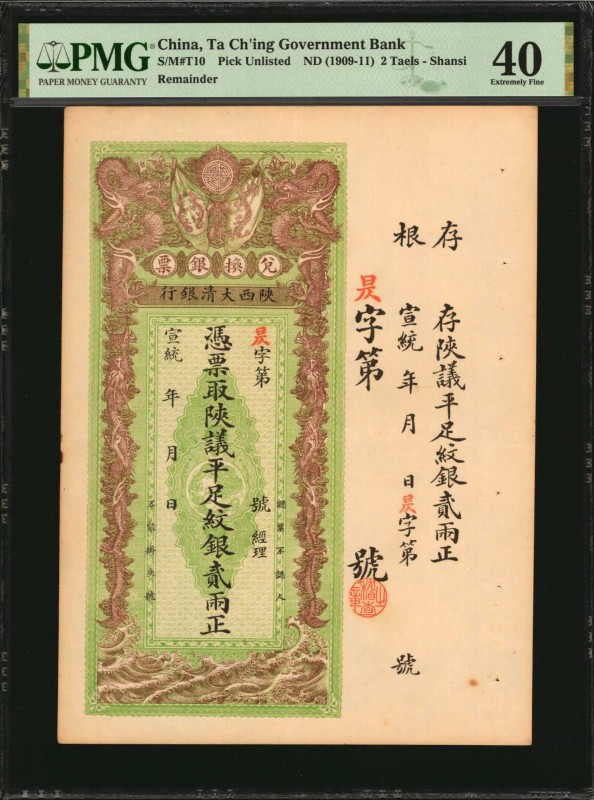 PMG
PAPER MONEY GUARANTY
China, Ta Ch'ing Government Bank
S/M#T10 Pick Unlisted ND (1909-11) 2 Taels - Shansi
Remainder
40
Extremely Fine
票銀換兌
行銀清大西陝
昃字第 號 經理
憑票取陝議平足紋銀貳兩正
宣統 年 月 日
認票不認人
不能掛失號
存根
存陝議平足紋銀貳兩正
宣統 年 月 日 昃字第 號
昃字第 號